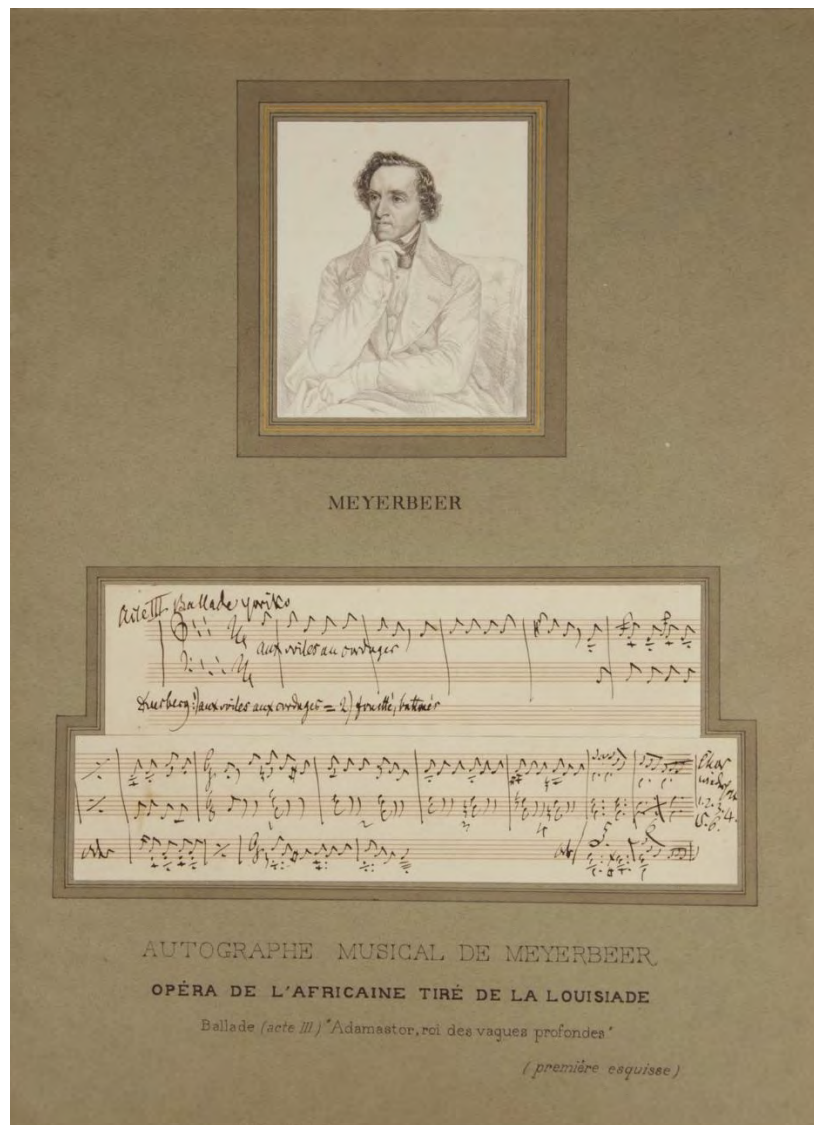 MEYERBEER
Acte III Ballade Yoriko
aux voiles au cordages
aux voiles aux cordages = 2)
Chor
1. 2. 3. 4.
5. 6.
2
3
4
5
6
oder
AUTOGRAPHE MUSICAL DE MEYERBEER
OPÉRA DE L'AFRICAINE TIRÉ DE LA LOUISIADE
Ballade (acte III) "Adamastor, roi des vagues profondes"
(première esquisse)